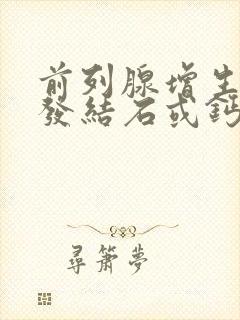 前列腺增生
發結石或鈣
尋簫夢